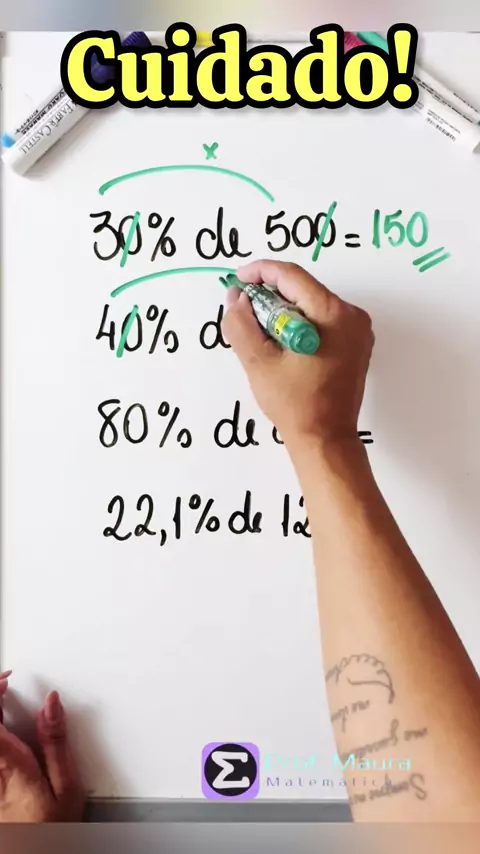 Cuidado!
FABER CASTELL
x
30% de 500 = 150
40% d
80% de =
22,1% de 12
Prof. Maura
Matemática